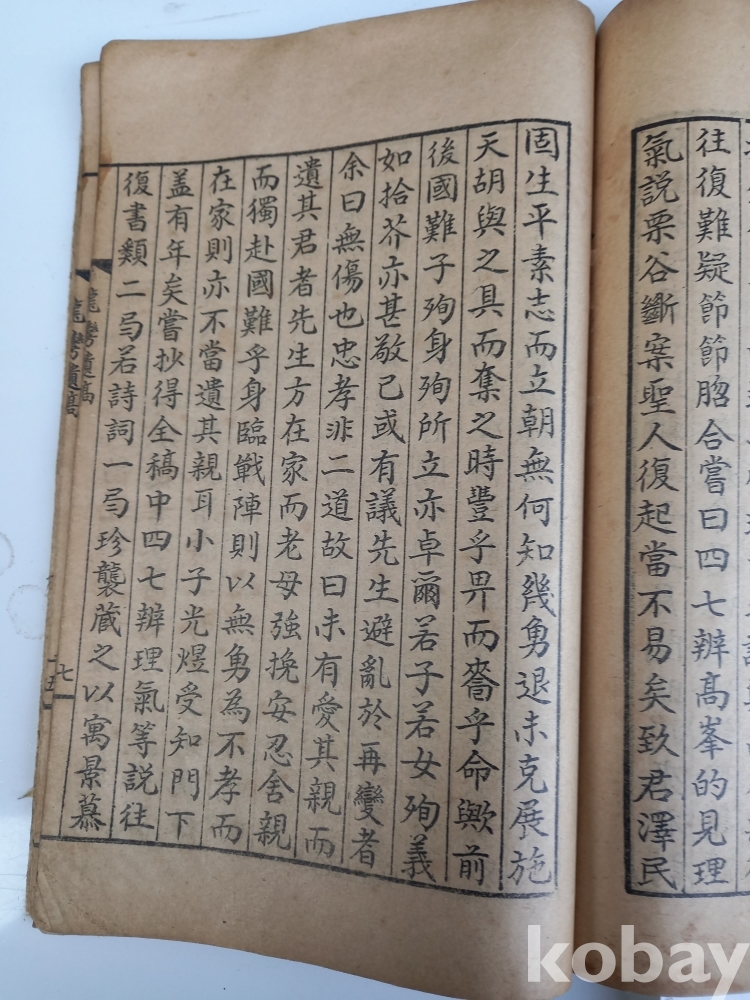 往復難疑節節䐇合嘗曰四七辨高峯的見理
氣說栗谷斷案聖人復起當不易矣致君澤民
固生平素志而立朝無何知幾勇退未克展施
天胡與之具而奪之時豐乎畀而嗇乎命歟前
後國難子殉身殉所立亦卓爾若子若女殉義
如拾芥亦甚敬已或有議先生避亂於再變者
余曰無傷也忠孝非二道故曰未有愛其親而
遺其君者先生方在家而老母強挽安忍舍親
而獨赴國難乎身臨戰陣則以無勇為不孝而
在家則亦不當遺其親耳小子光煜受知門下
盖有年矣嘗抄得全稿中四七辨理氣等說往
復書類二局若詩詞一局珍襲藏之以寓景慕
遺稿 七
遺稿 十五
kobay